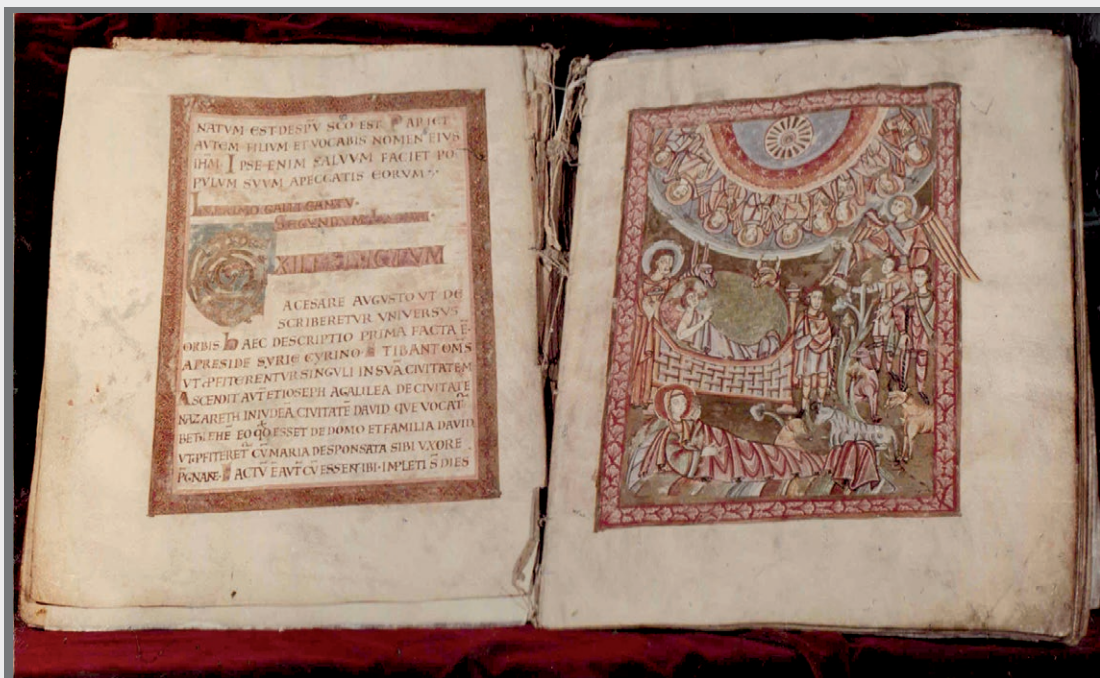 NATVM EST DE SPV SCO EST PARIET
AVTEM FILIVM ET VOCABIS NOMEN EIVS
IHM IPSE ENIM SALVVM FACIET PO
PVLVM SVVM APECCATIS EORVM
IN PRIMO GALLI CANTV
SECVNDVM
EXIIT EDICTVM
A CESARE AVGVSTO VT DE
SCRIBERETVR VNIVERSVS
ORBIS HAEC DESCRIPTIO PRIMA FACTA Ē
APRESIDE SYRIE CYRINO ET IBANT OMS
VT PFITERENTVR SINGVLI IN SVĀ CIVITATEM
ASCENDIT AVT ET IOSEPH AGALILEA DE CIVITATE
NAZARETH IN IVDEĀ CIVITATĒ DAVID QVE VOCAT
BETHLEHĒ EO QD ESSET DE DOMO ET FAMILIA DAVID
VT PFITERET CV MARIA DESPONSATA SIBI VXORE
PGNANE FACTV Ē AVT CV ESSENT IBI IMPLETI S DIES